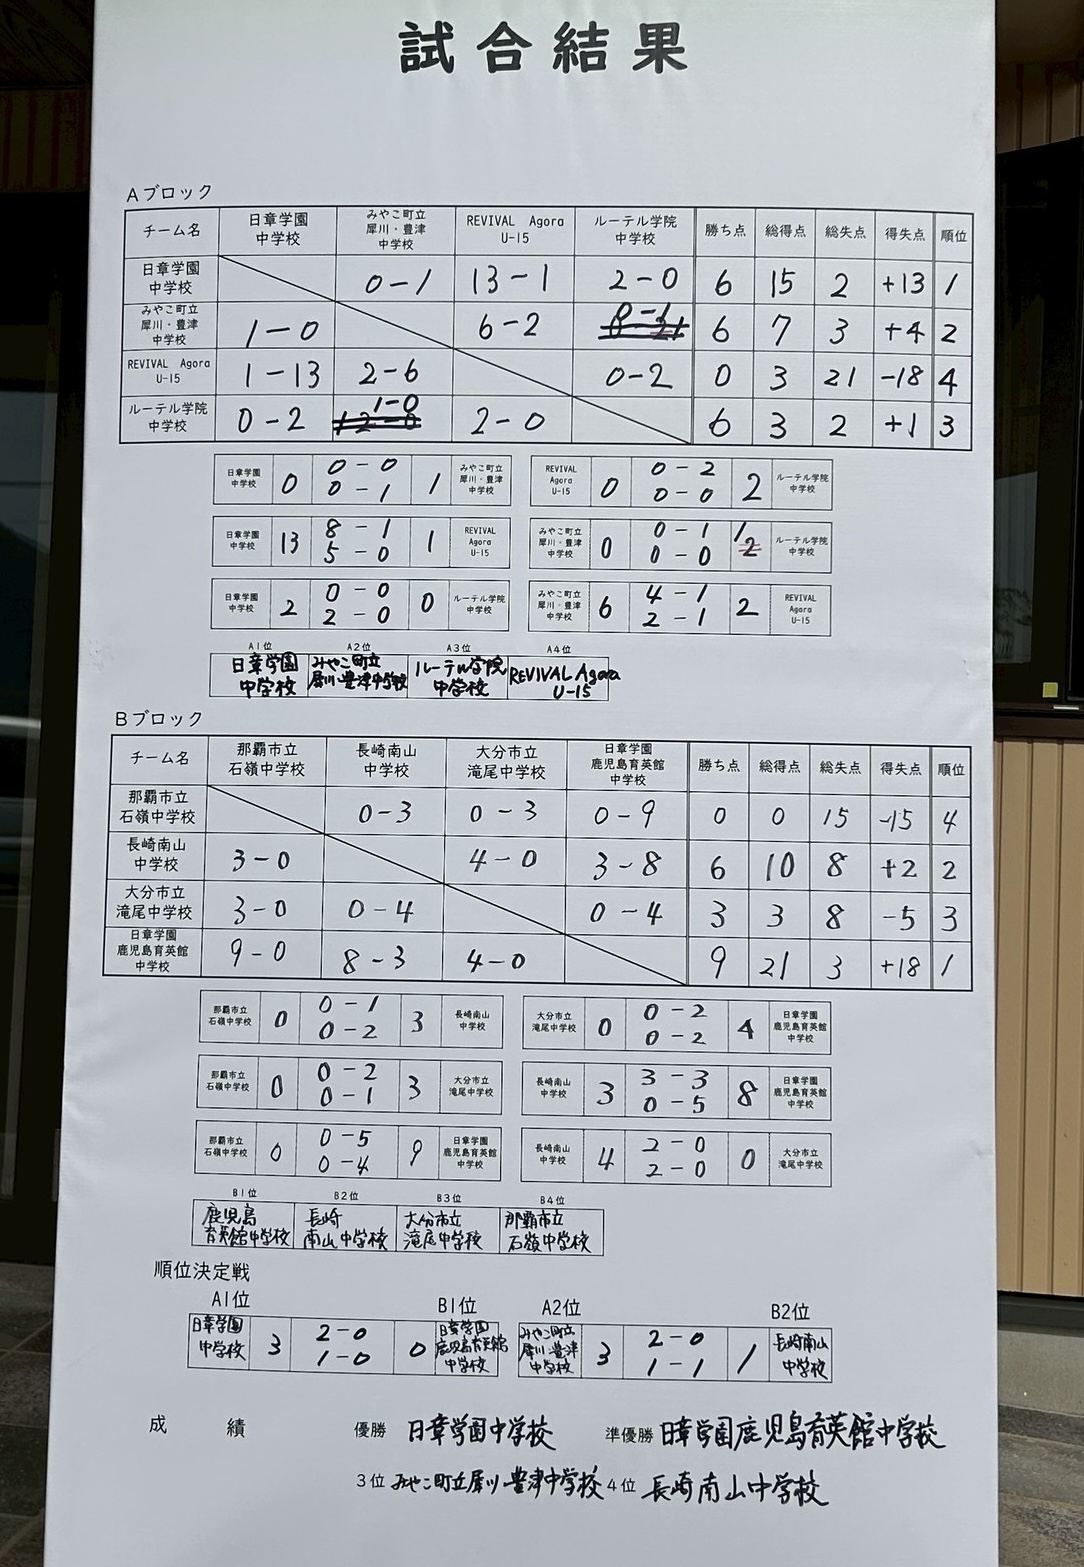 試合結果
Aブロック
チーム名 日章学園中学校 みやこ町立犀川・豊津中学校 REVIVAL Agora U-15 ルーテル学院中学校 勝ち点 総得点 総失点 得失点 順位
日章学園中学校 0-1 13-1 2-0 6 15 2 +13 1
みやこ町立犀川・豊津中学校 1-0 6-2 0-1 6 7 3 +4 2
REVIVAL Agora U-15 1-13 2-6 0-2 0 3 21 -18 4
ルーテル学院中学校 0-2 1-0 2-0 6 3 2 +1 3
日章学園中学校 0 0-0 0-1 1 みやこ町立犀川・豊津中学校
REVIVAL Agora U-15 0 0-2 0-0 2 ルーテル学院中学校
日章学園中学校 13 8-1 5-0 1 REVIVAL Agora U-15
みやこ町立犀川・豊津中学校 0 0-1 0-0 1 2 ルーテル学院中学校
日章学園中学校 2 0-0 2-0 0 ルーテル学院中学校
みやこ町立犀川・豊津中学校 6 4-1 2-1 2 REVIVAL Agora U-15
A1位 A2位 A3位 A4位
日章学園中学校 みやこ町立犀川・豊津中学校 ルーテル学院中学校 REVIVAL Agora U-15
Bブロック
チーム名 那覇市立石嶺中学校 長崎南山中学校 大分市立滝尾中学校 日章学園鹿児島育英館中学校 勝ち点 総得点 総失点 得失点 順位
那覇市立石嶺中学校 0-3 0-3 0-9 0 0 15 -15 4
長崎南山中学校 3-0 4-0 3-8 6 10 8 +2 2
大分市立滝尾中学校 3-0 0-4 0-4 3 3 8 -5 3
日章学園鹿児島育英館中学校 9-0 8-3 4-0 9 21 3 +18 1
那覇市立石嶺中学校 0 0-1 0-2 3 長崎南山中学校
大分市立滝尾中学校 0 0-2 0-2 4 日章学園鹿児島育英館中学校
那覇市立石嶺中学校 0 0-2 0-1 3 大分市立滝尾中学校
長崎南山中学校 3 3-3 0-5 8 日章学園鹿児島育英館中学校
那覇市立石嶺中学校 0 0-5 0-4 9 日章学園鹿児島育英館中学校
長崎南山中学校 4 2-0 2-0 0 大分市立滝尾中学校
B1位 B2位 B3位 B4位
鹿児島育英館中学校 長崎南山中学校 大分市立滝尾中学校 那覇市立石嶺中学校
順位決定戦
A1位 B1位 A2位 B2位
日章学園中学校 3 2-0 1-0 0 日章学園鹿児島育英館中学校
みやこ町立犀川・豊津中学校 3 2-0 1-1 1 長崎南山中学校
成績 優勝 日章学園中学校 準優勝 日章学園鹿児島育英館中学校
3位 みやこ町立犀川・豊津中学校 4位 長崎南山中学校